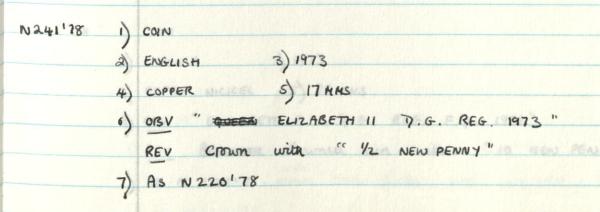 N241'78 1) COIN
2) ENGLISH 3) 1973
4) COPPER 5) 17 MMS
6) OBV " QUEEN ELIZABETH II D.G. REG. 1973 "
REV Crown with " 1/2 NEW PENNY"
7) AS N220'78